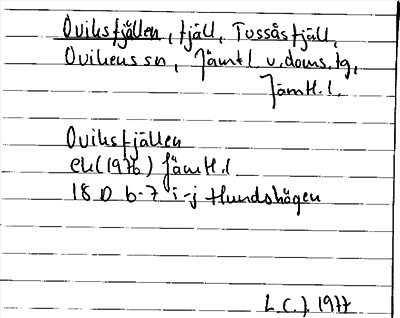 Oviksfjällen, fjäll, Tossåsfjäll,
Ovikens sn, Jämtl. v. doms. tg,
Jämtl. l.
Oviksfjällen
ek (1976) Jämtl. l
18 D b-7 i-j Hundshögen
L.C.J. 1977